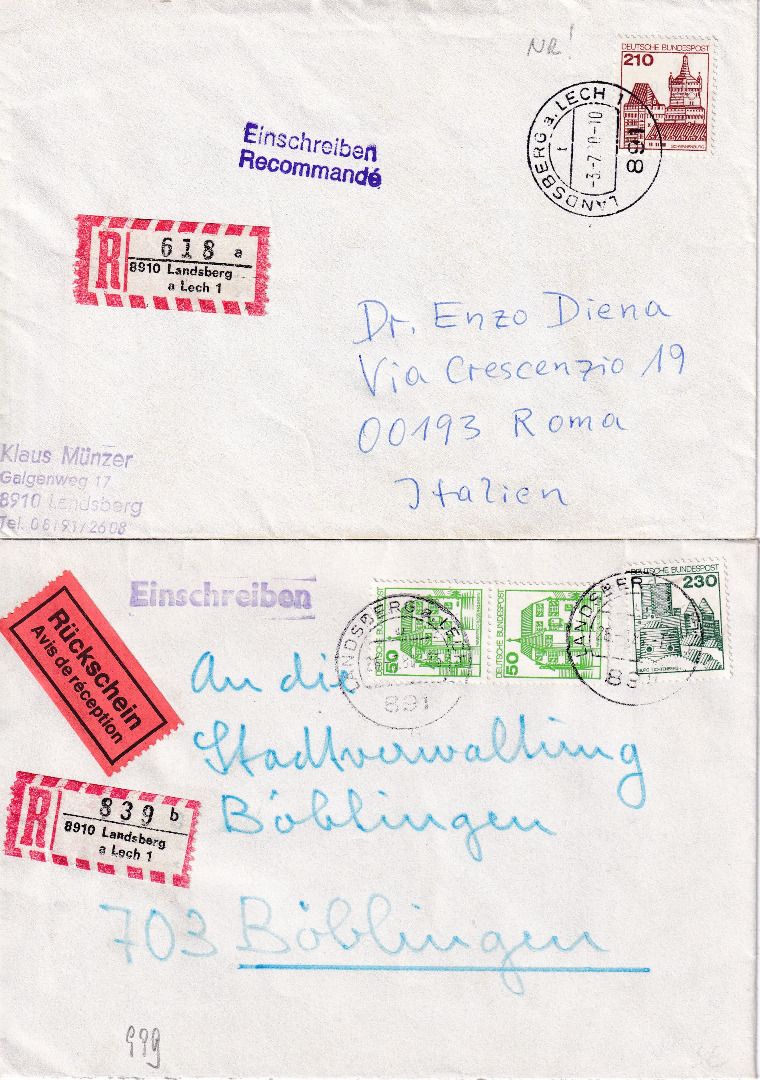 NR!
DEUTSCHE BUNDESPOST
210
LANDSBERG a. LECH 1
t
891
Einschreiben
Recommandé
R
618 a
8910 Landsberg
a Lech 1
Dr. Enzo Diena
Via Crescenzio 19
00193 Roma
Italien
Klaus Münzer
Galgenweg 17
8910 Landsberg
Tel. 08191/2608
Einschreiben
Rückschein
Avis de réception
DEUTSCHE BUNDESPOST
50
DEUTSCHE BUNDESPOST
50
DEUTSCHE BUNDESPOST
230
LANDSBERG a. LECH
891
LANDSBER
89
An die
Stadtverwaltung
Böblingen
R
839 b
8910 Landsberg
a Lech 1
703 Böblingen